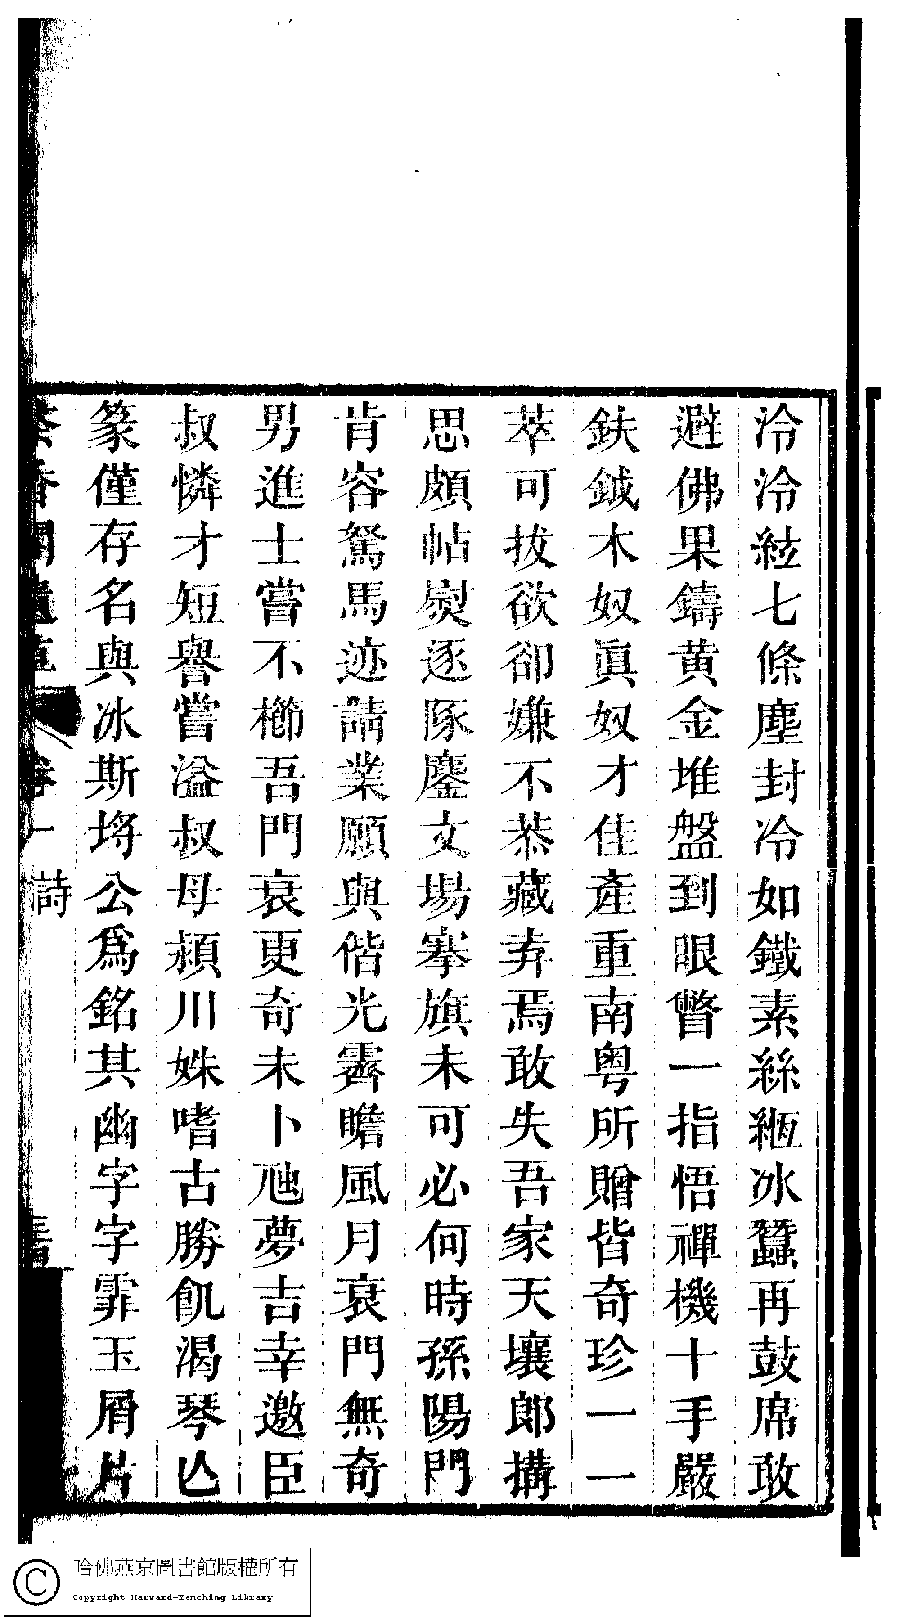 泠泠絃七條塵封冷如鐵素絲縆冰蠶再鼓席敢
避佛果鑄黄金堆盤到眼瞥一指悟禪機十手嚴
鈇鉞木奴眞奴才佳產重南粤所贈皆奇珍一一
萃可拔欲卻嫌不恭藏弆焉敢失吾家天壤郎搆
思頗帖熨逐隊鏖文場搴旗未可必何時孫陽門
肯容駑馬迹請業願與偕光霽瞻風月衰門無奇
男進士嘗不櫛吾門衰更奇未卜虺夢吉幸邀臣
叔憐才短譽嘗溢叔母頳川姝嗜古勝飢渴琴亾
篆僅存名與冰斯埒公爲銘其幽字字霏玉屑片
卷一 詩
哈佛燕京圖書館版權所有
Copyright Harvard-Yenching Library